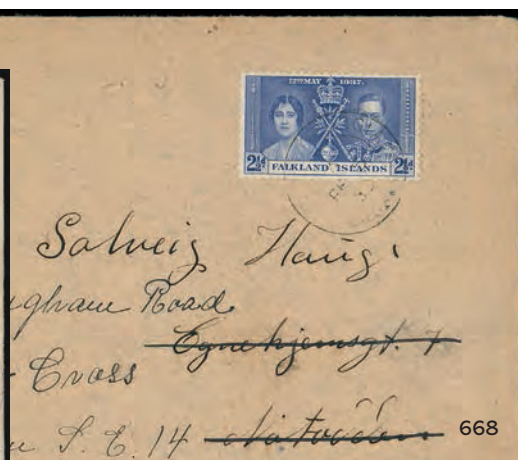 12TH MAY 1937.
2½d. FALKLAND ISLANDS 2½d.
Solveig Haug
gham Road
Egnehjemsgt. 7
Cross
S. E. 14 Notodden
668